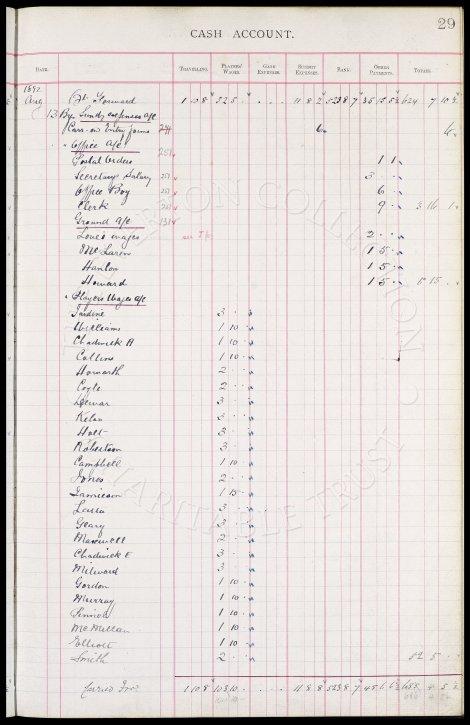 29
CASH ACCOUNT.
DATE. TRAVELLING. PLAYERS' WAGES. GAME EXPENSES. SUNDRY EXPENSES. BANK. OTHER PAYMENTS. TOTALS.
1892
Aug Bt Forward 1 10 8 52 5
13 By Sundry expenses a/c
Carr-on Entry forms 6 6
" Office a/c
Postal Orders 1 1
Secretarys Salary 3
Office Boy 6
Clerk 9 3 16 1
Ground a/c
Love's wages 2
McLaren 1 5
Hanlon 1 5
Howard 1 5 5 15
" Players Wages a/c
Jardine 3
Williams 1 10
Chadwick A 1 10
Collins 1 10
Howarth 2
Coyle 2
Dewar 3
Kelso 3
Holt 3
Robertson 3
Campbell 1 10
Jones 2
Jamieson 1 15
Latta 3
Geary 3
Maxwell 2
Chadwick E 3
Milward 3
Gordon 1 10
Murray 1 10
Pinnell 1 10
McMillan 1 10
Elliott 1 10
Smith 2 52 5
Carried For'd 1 10 8
EVERTON COLLECTION
CHARITABLE TRUST